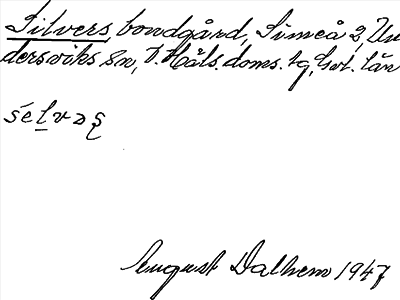 Silvers, bondgård, Simeå 2, Un
dersviks sn, V. Häls. doms. tg, Gvl. län
sélvəş
August Dalhem 1947